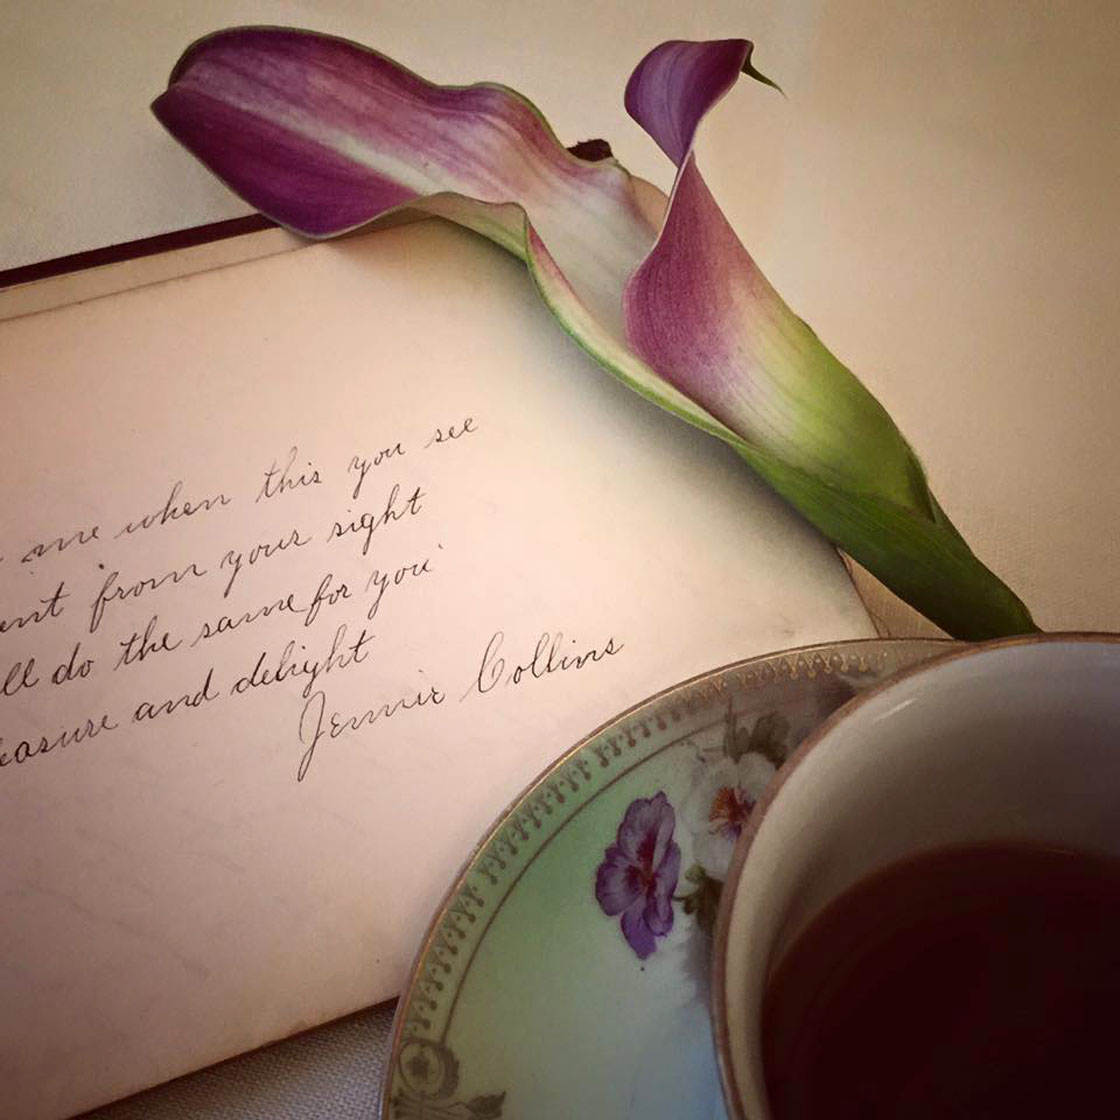 me when this you see
from your sight
do the same for you
and delight
Jennie Collins